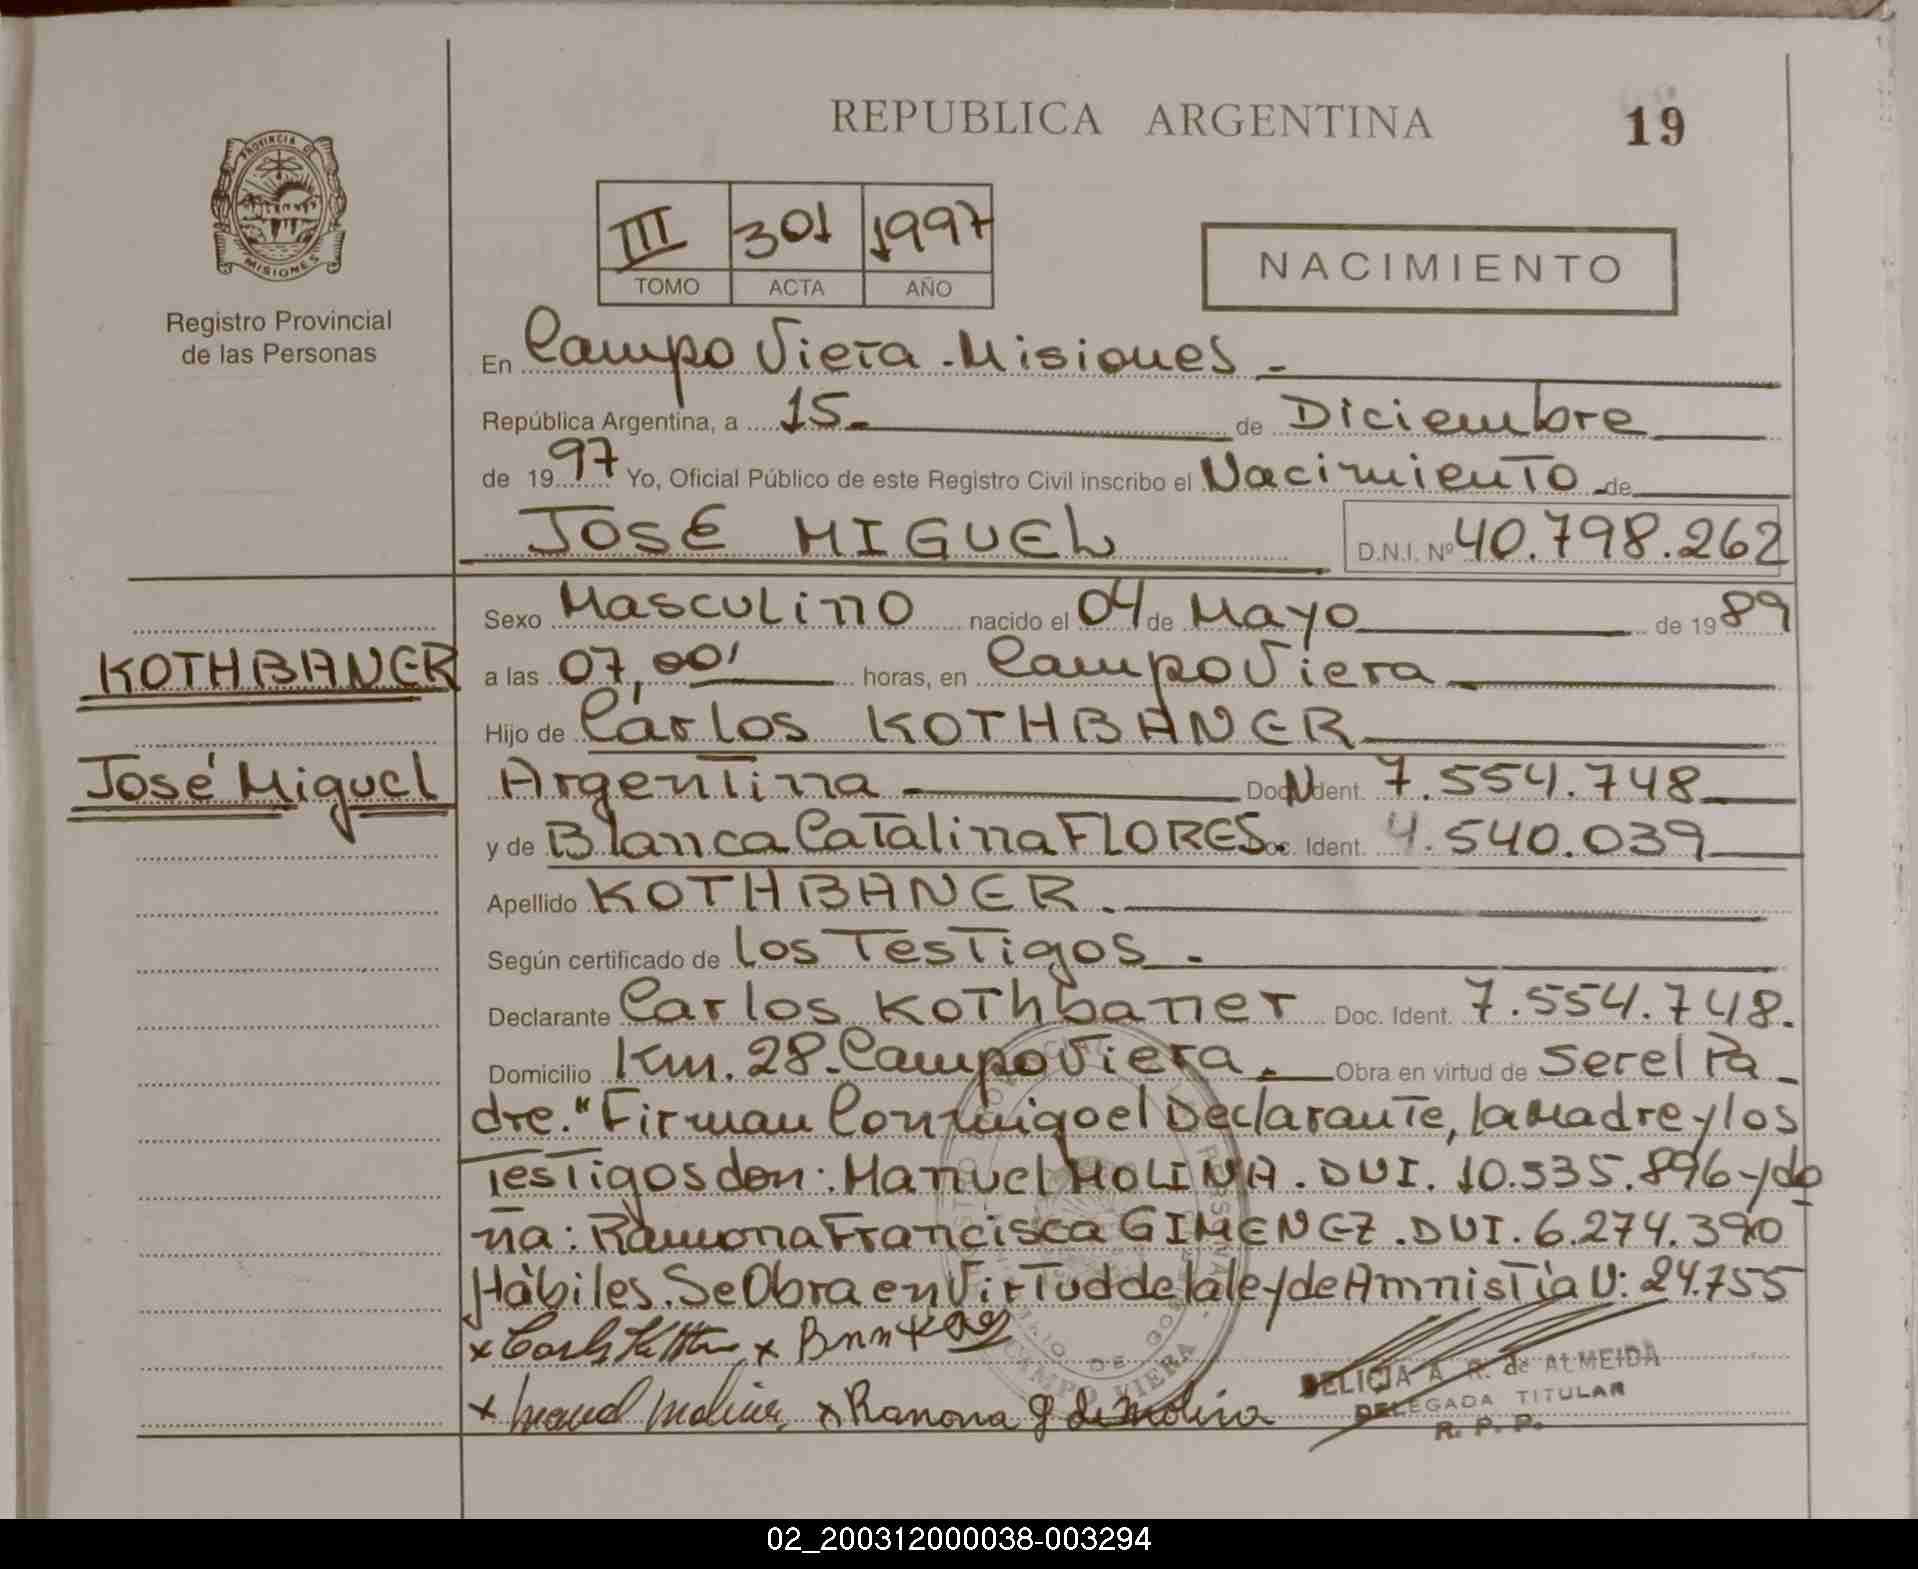 REPUBLICA ARGENTINA
19
PROVINCIA DE
MISIONES
Registro Provincial
de las Personas
III 301 1997
TOMO ACTA AÑO
NACIMIENTO
En Campo Viera - Misiones -
República Argentina, a 15 - de Diciembre
de 1997 Yo, Oficial Público de este Registro Civil inscribo el Nacimiento de
JOSÉ MIGUEL D.N.I. Nº 40.798.262
Sexo Masculino nacido el 04 de Mayo de 1989
KOTHBANER
a las 07,00' horas, en Campo Viera
Hijo de Carlos KOTHBANER
José Miguel
Argentina Doc. Ident. 7.554.748
y de Blanca Catalina FLORES. Doc. Ident. 4.540.039
Apellido KOTHBANER.
Según certificado de los Testigos -
Declarante Carlos Kothbaner Doc. Ident. 7.554.748.
Domicilio Km. 28. Campo Viera. Obra en virtud de ser el Pa-
dre." Firman Conmigo el Declarante, la Madre y los
Testigos don: Manuel MOLINA. DNI. 10.535.896 y do
ña: Ramona Francisca GIMENEZ. DNI. 6.274.390
Hàbiles. Se Obra en Virtud de la ley de Amnistía N: 24.755
x x
x Manuel Molina x Ramona g de molina
DELICIA A. R. de ALMEIDA
DELEGADA TITULAR
R. P. P.
CAMPO VIERA
02_200312000038-003294